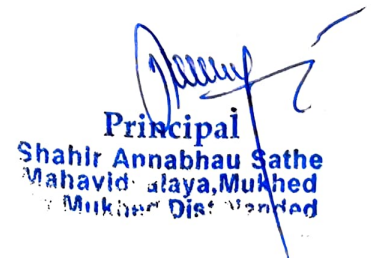 Principal
Shahir Annabhau Sathe
Mahavid alaya,Mukhed
Mukhed Dist Nanded